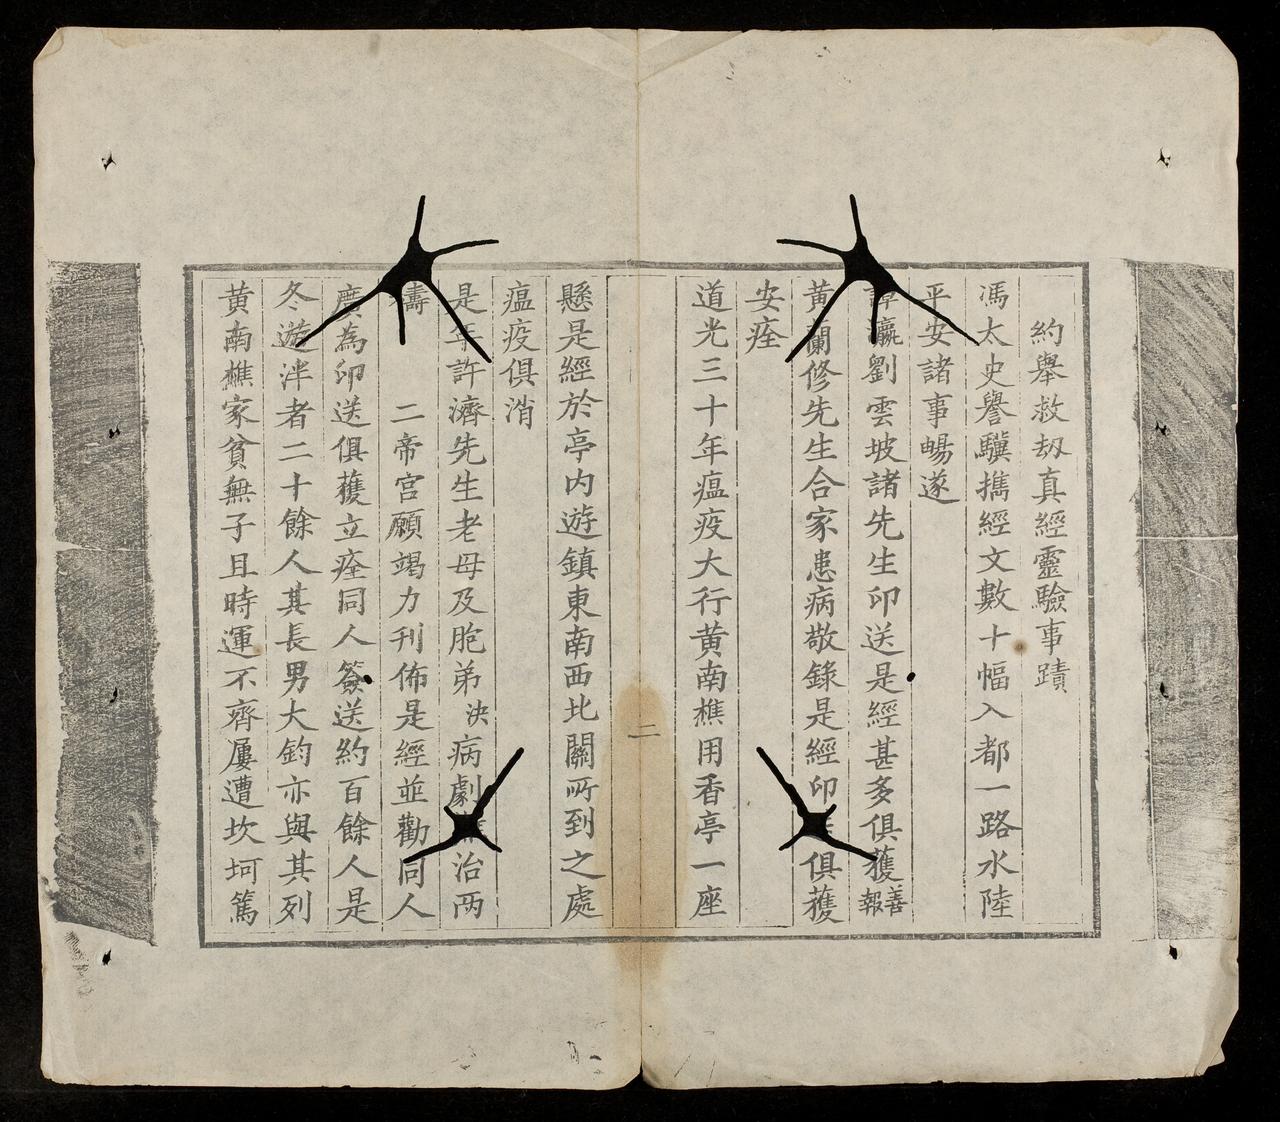 約舉救刧真經靈驗事蹟
馮太史譽驥攜經文數十幅入都一路水陸
平安諸事暢遂
瀛劉雲坡諸先生印送是經甚多俱獲善報
黃蘭修先生合家患病敬錄是經印俱獲
安痊
道光三十年瘟疫大行黃南樵用香亭一座
二
懸是經於亭內遊鎮東南西北關所到之處
瘟疫俱消
是年許濟先生老母及胞弟決病劇治两
禱二帝宮願竭力刊佈是經並勸同人
廣為印送俱獲立痊同人簽送約百餘人是
冬遊泮者二十餘人其長男大鈞亦與其列
黃南樵家貧無子且時運不齊屢遭坎坷篤